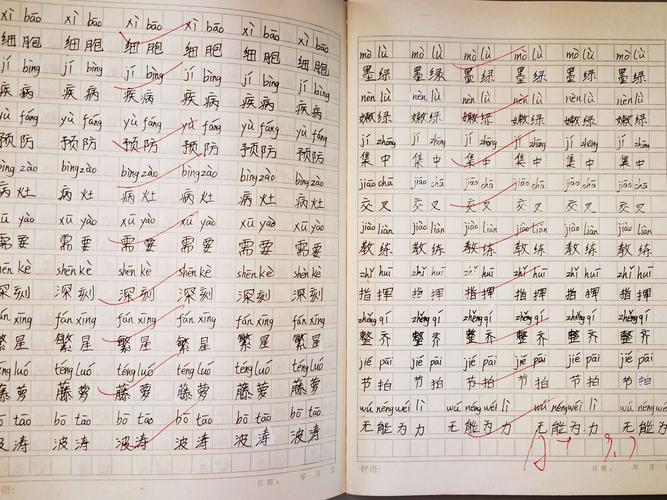 xì bāo xì bāo xì bāo xì bāo xì bāo xì bāo
细胞 细胞 细胞 细胞 细胞 细胞
jí bìng jí bìng jí bìng jí bìng jí bìng jí bìng
疾病 疾病 疾病 疾病 疾病 疾病
yù fáng yù fáng yù fáng yù fáng yù fáng yù fáng
预防 预防 预防 预防 预防 预防
bìng zào bìng zào bìng zào bìng zào bìng zào bìng zào
病灶 病灶 病灶 病灶 病灶 病灶
xū yào xū yào xū yào xū yào xū yào xū yào
需要 需要 需要 需要 需要 需要
shēn kè shēn kè shēn kè shēn kè shēn kè shēn kè
深刻 深刻 深刻 深刻 深刻 深刻
fán xīng fán xīng fán xīng fán xīng fán xīng fán xīng
繁星 繁星 繁星 繁星 繁星 繁星
téng luó téng luó téng luó téng luó téng luó téng luó
藤萝 藤萝 藤萝 藤萝 藤萝 藤萝
bō tāo bō tāo bō tāo bō tāo bō tāo bō tāo
波涛 波涛 波涛 波涛 波涛 波涛
评语: 日期: 年 月 日
mò lǜ mò lǜ mò lǜ mò lǜ mò lǜ mò lǜ
墨绿 墨绿 墨绿 墨绿 墨绿 墨绿
nèn lǜ nèn lǜ nèn lǜ nèn lǜ nèn lǜ nèn lǜ
嫩绿 嫩绿 嫩绿 嫩绿 嫩绿 嫩绿
jí zhōng jí zhōng jí zhōng jí zhōng jí zhōng jí zhōng
集中 集中 集中 集中 集中 集中
jiāo chā jiāo chā jiāo chā jiāo chā jiāo chā jiāo chā
交叉 交叉 交叉 交叉 交叉 交叉
jiào liàn jiào liàn jiào liàn jiào liàn jiào liàn jiào liàn
教练 教练 教练 教练 教练 教练
zhǐ huī zhǐ huī zhǐ huī zhǐ huī zhǐ huī zhǐ huī
指挥 指挥 指挥 指挥 指挥 指挥
zhěng qí zhěng qí zhěng qí zhěng qí zhěng qí zhěng qí
整齐 整齐 整齐 整齐 整齐 整齐
jié pāi jié pāi jié pāi jié pāi jié pāi jié pāi
节拍 节拍 节拍 节拍 节拍 节拍
wú néng wéi lì wú néng wéi lì wú néng wéi lì wú néng wéi lì
无能为力 无能为力 无能为力 无能为力
评语: 日期: 年 月 日